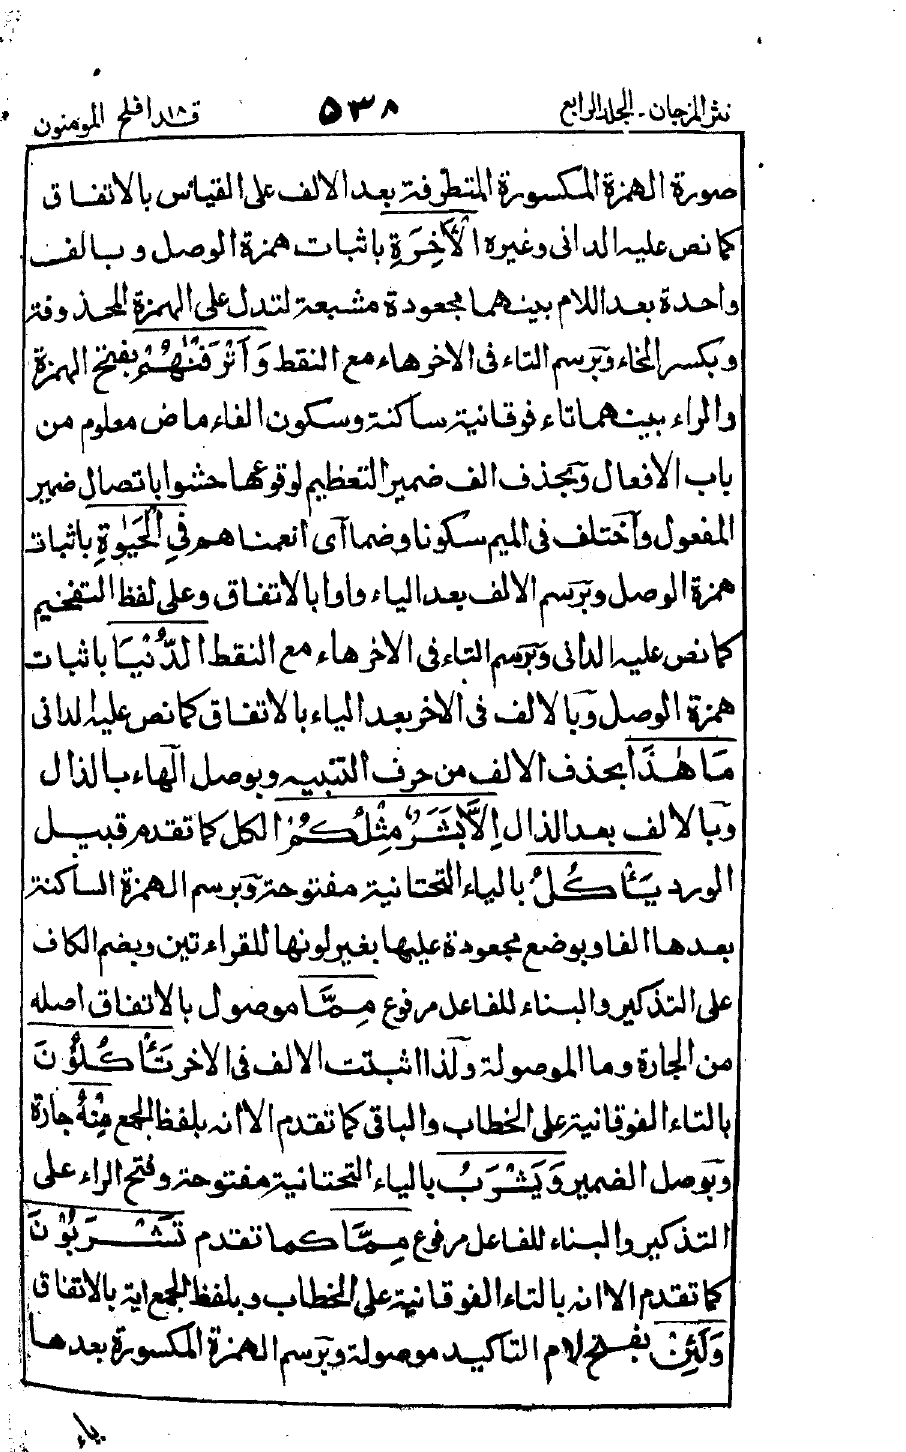 نثر المرجان ـ الجلد الرابع
٥٣٨
قد افلح ١٨ المومنون
صورة الهمزة المكسورة المتطرفة بعد الالف على القياس بالاتفاق
كما نص عليه الدانى وغيره الْاٰخِرَةِ باثبات همزة الوصل وبالف
واحدة بعد اللام بينهما مجعودة مشبعة لتدل على الهمزة المحذوفة
وبكسر الخاء وبرسم التاء فى الاخر هاء مع النقط وَاَتْرَفْنٰهُمْ بفتح الهمزة
والراء بينهما تاء فوقانية ساكنة وسكون الفاء ماض معلوم من
باب الافعال وبحذف الف ضمير التعظيم لوقوعها حشوا باتصال ضمير
المفعول واختلف فى الميم سكونا وضما اى انعمناهم فِي الْحَيٰوةِ باثبات
همزة الوصل وبرسم الالف بعد الياء واوا بالاتفاق وعلى لفظ التفخيم
كما نص عليه الدانى وبرسم التاء فى الاخر هاء مع النقط الدُّنْيَا باثبات
همزة الوصل وبالالف فى الاخر بعد الياء بالاتفاق كما نص عليه الدانى
مَا هٰذَا بحذف الالف من حرف التنبيه وبوصل الهاء بالذال
وبالالف بعد الذال اِلَّا بَشَرٌ مِثْلُكُمْ الكل كما تقدم قبيل
الورد يَأْكُلُ بالياء التحتانية مفتوحة وبرسم الهمزة الساكنة
بعدها الفا وبوضع مجعودة عليها بغير لونها للقراءتين وبضم الكاف
على التذكير والبناء للفاعل مرفوع مِمَّا موصول بالاتفاق اصله
من الجارة وما الموصولة ولذا اثبتت الالف فى الاخر تَأْكُلُوْنَ
بالتاء الفوقانية على الخطاب والباقى كما تقدم الا انه بلفظ الجمع مِنْهُ جارة
وبوصل الضمير وَيَشْرَبُ بالياء التحتانية مفتوحة وفتح الراء على
التذكير والبناء للفاعل مرفوع مِمَّا كما تقدم تَشْرَبُوْنَ
كما تقدم الا انه بالتاء الفوقانية على الخطاب وبلفظ الجمع اية بالاتفاق
وَلَئِنْ بفتح لام التاكيد موصولة وبرسم الهمزة المكسورة بعدها
ياء